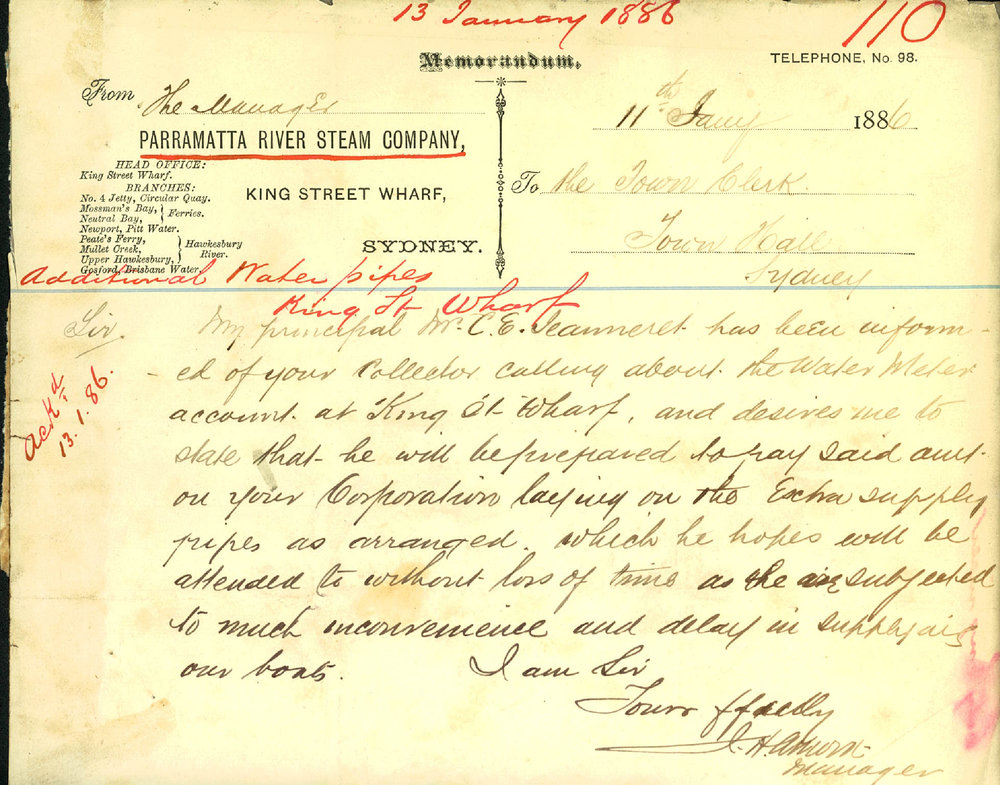 13 January 1886
110
Memorandum.
TELEPHONE, No. 98.
From The Manager
11th Jany 1886
PARRAMATTA RIVER STEAM COMPANY,
HEAD OFFICE:
King Street Wharf.
BRANCHES:
No. 4 Jetty, Circular Quay.
Mossman's Bay,
Neutral Bay,
Ferries.
Newport, Pitt Water.
Peate's Ferry,
Mullet Creek,
Upper Hawkesbury,
Hawkesbury
River.
Gosford, Brisbane Water.
KING STREET WHARF,
SYDNEY.
To the Town Clerk
Town Hall
Sydney
Additional Water pipes
King St Wharf
Sir.
Ackd
13.1.86.
My principal Mr. C. E. Jeanneret has been inform-
-ed of your Collector calling about the Water Meter
account at King St Wharf, and desires me to
state that he will be prepared to pay said amt
on your Corporation laying on the Extra supply
pipes as arranged. which he hopes will be
attended to without loss of time as he are subjected
to much inconvenience and delay in supplying
our boats. I am Sir
Yours ffully
Manager